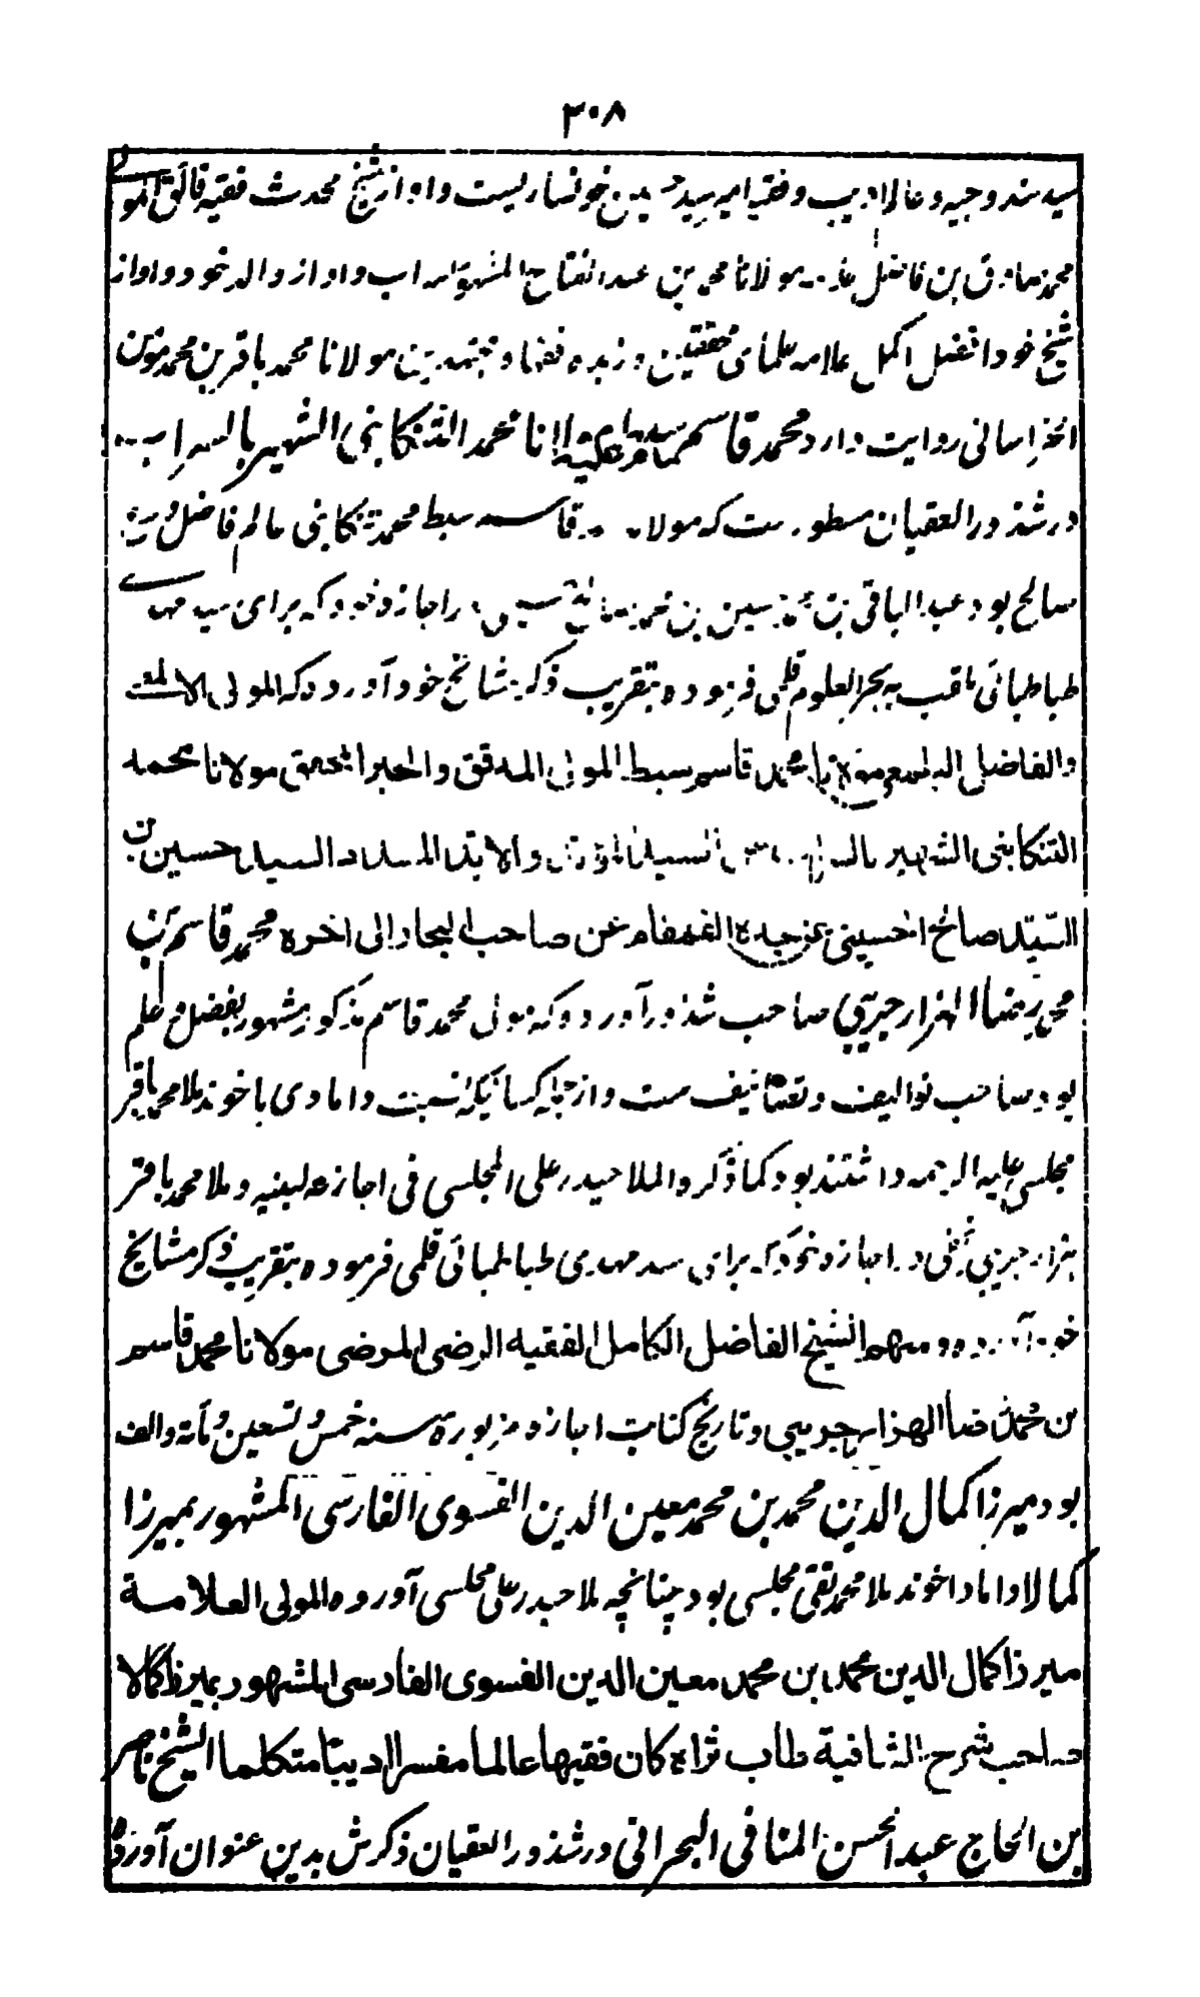 ٣٠٨
سید سند وجیه و عالم ادیب و فقیه امیر سید حسین خونساریست و او از شیخ محدث فقیه فائق المولی
محمد صادق بن فاضل مولانا محمد بن عبد الفتاح المشهور بسراب و او از والد خود و او از
شیخ خود افضل اکمل علامه علمای محققین و زبده فقها و مجتهدین مولانا محمد باقر بن محمد مومن
الخراسانی روایت دارد محمد قاسم مولانا محمد التنکابنی الشهیر بالسراب
در شذور العقیان مسطورست که مولانا قاسم سبط محمد تنکابنی عالم فاضل و
صالح بود عبد الباقی بن محمد حسین بن محمد صالح در اجازه خود که برای سید مهدی
طباطبائی ملقب به بحر العلوم قلمی فرموده بتقریب ذکر مشائخ خود آورده که المولی الالمعی
والفاضل مولانا محمد قاسم سبط المولی المدقق والحبر المحقق مولانا محمد
التنکابنی الشهیر بالسراب عن السید المؤتمن والاید المسدد السید حسین بن
السید صالح الحسینی عن جده القمقام عن صاحب البحار الی اخره محمد قاسم بن
محمد رضا الهزار جریبی صاحب شذور آورده که مولی محمد قاسم مذکور مشهور بفضل و علم
بود صاحب توالیف و تصانیف ست و از جمله کسانیکه نسبت دامادی باخوند ملا محمد باقر
مجلسی علیه الرحمه داشتند بود کما ذکره الملا حیدر علی المجلسی فی اجازه لبنیه و ملا محمد باقر
هزار جریبی نجفی در اجازه خود که برای سید مهدی طباطبائی قلمی فرموده بتقریب ذکر مشائخ
خود آورده و منهم الشیخ الفاضل الکامل الفقیه الرضی المرضی مولانا محمد قاسم
بن محمد رضا الهزار جریبی و تاریخ کتابت اجازه مزبوره سنه خمس و تسعین و مأة والف
بود میرزا کمال الدین محمد بن محمد معین الدین الفسوی الفارسی المشهور بمیرزا
کمالا داماد اخوند ملا محمد تقی مجلسی بود چنانچه ملا حیدر علی مجلسی آورده المولی العلامة
میرزا کمال الدین محمد بن محمد معین الدین الفسوی الفارسی المشهور بمیرزا کمالا
صاحب شرح الشافیة طاب ثراه کان فقیها عالما مفسرا ادیبا متکلما الشیخ ناصر
بن الحاج عبد الحسن المنافی البحرانی در شذور العقیان ذکرش بدین عنوان آورده